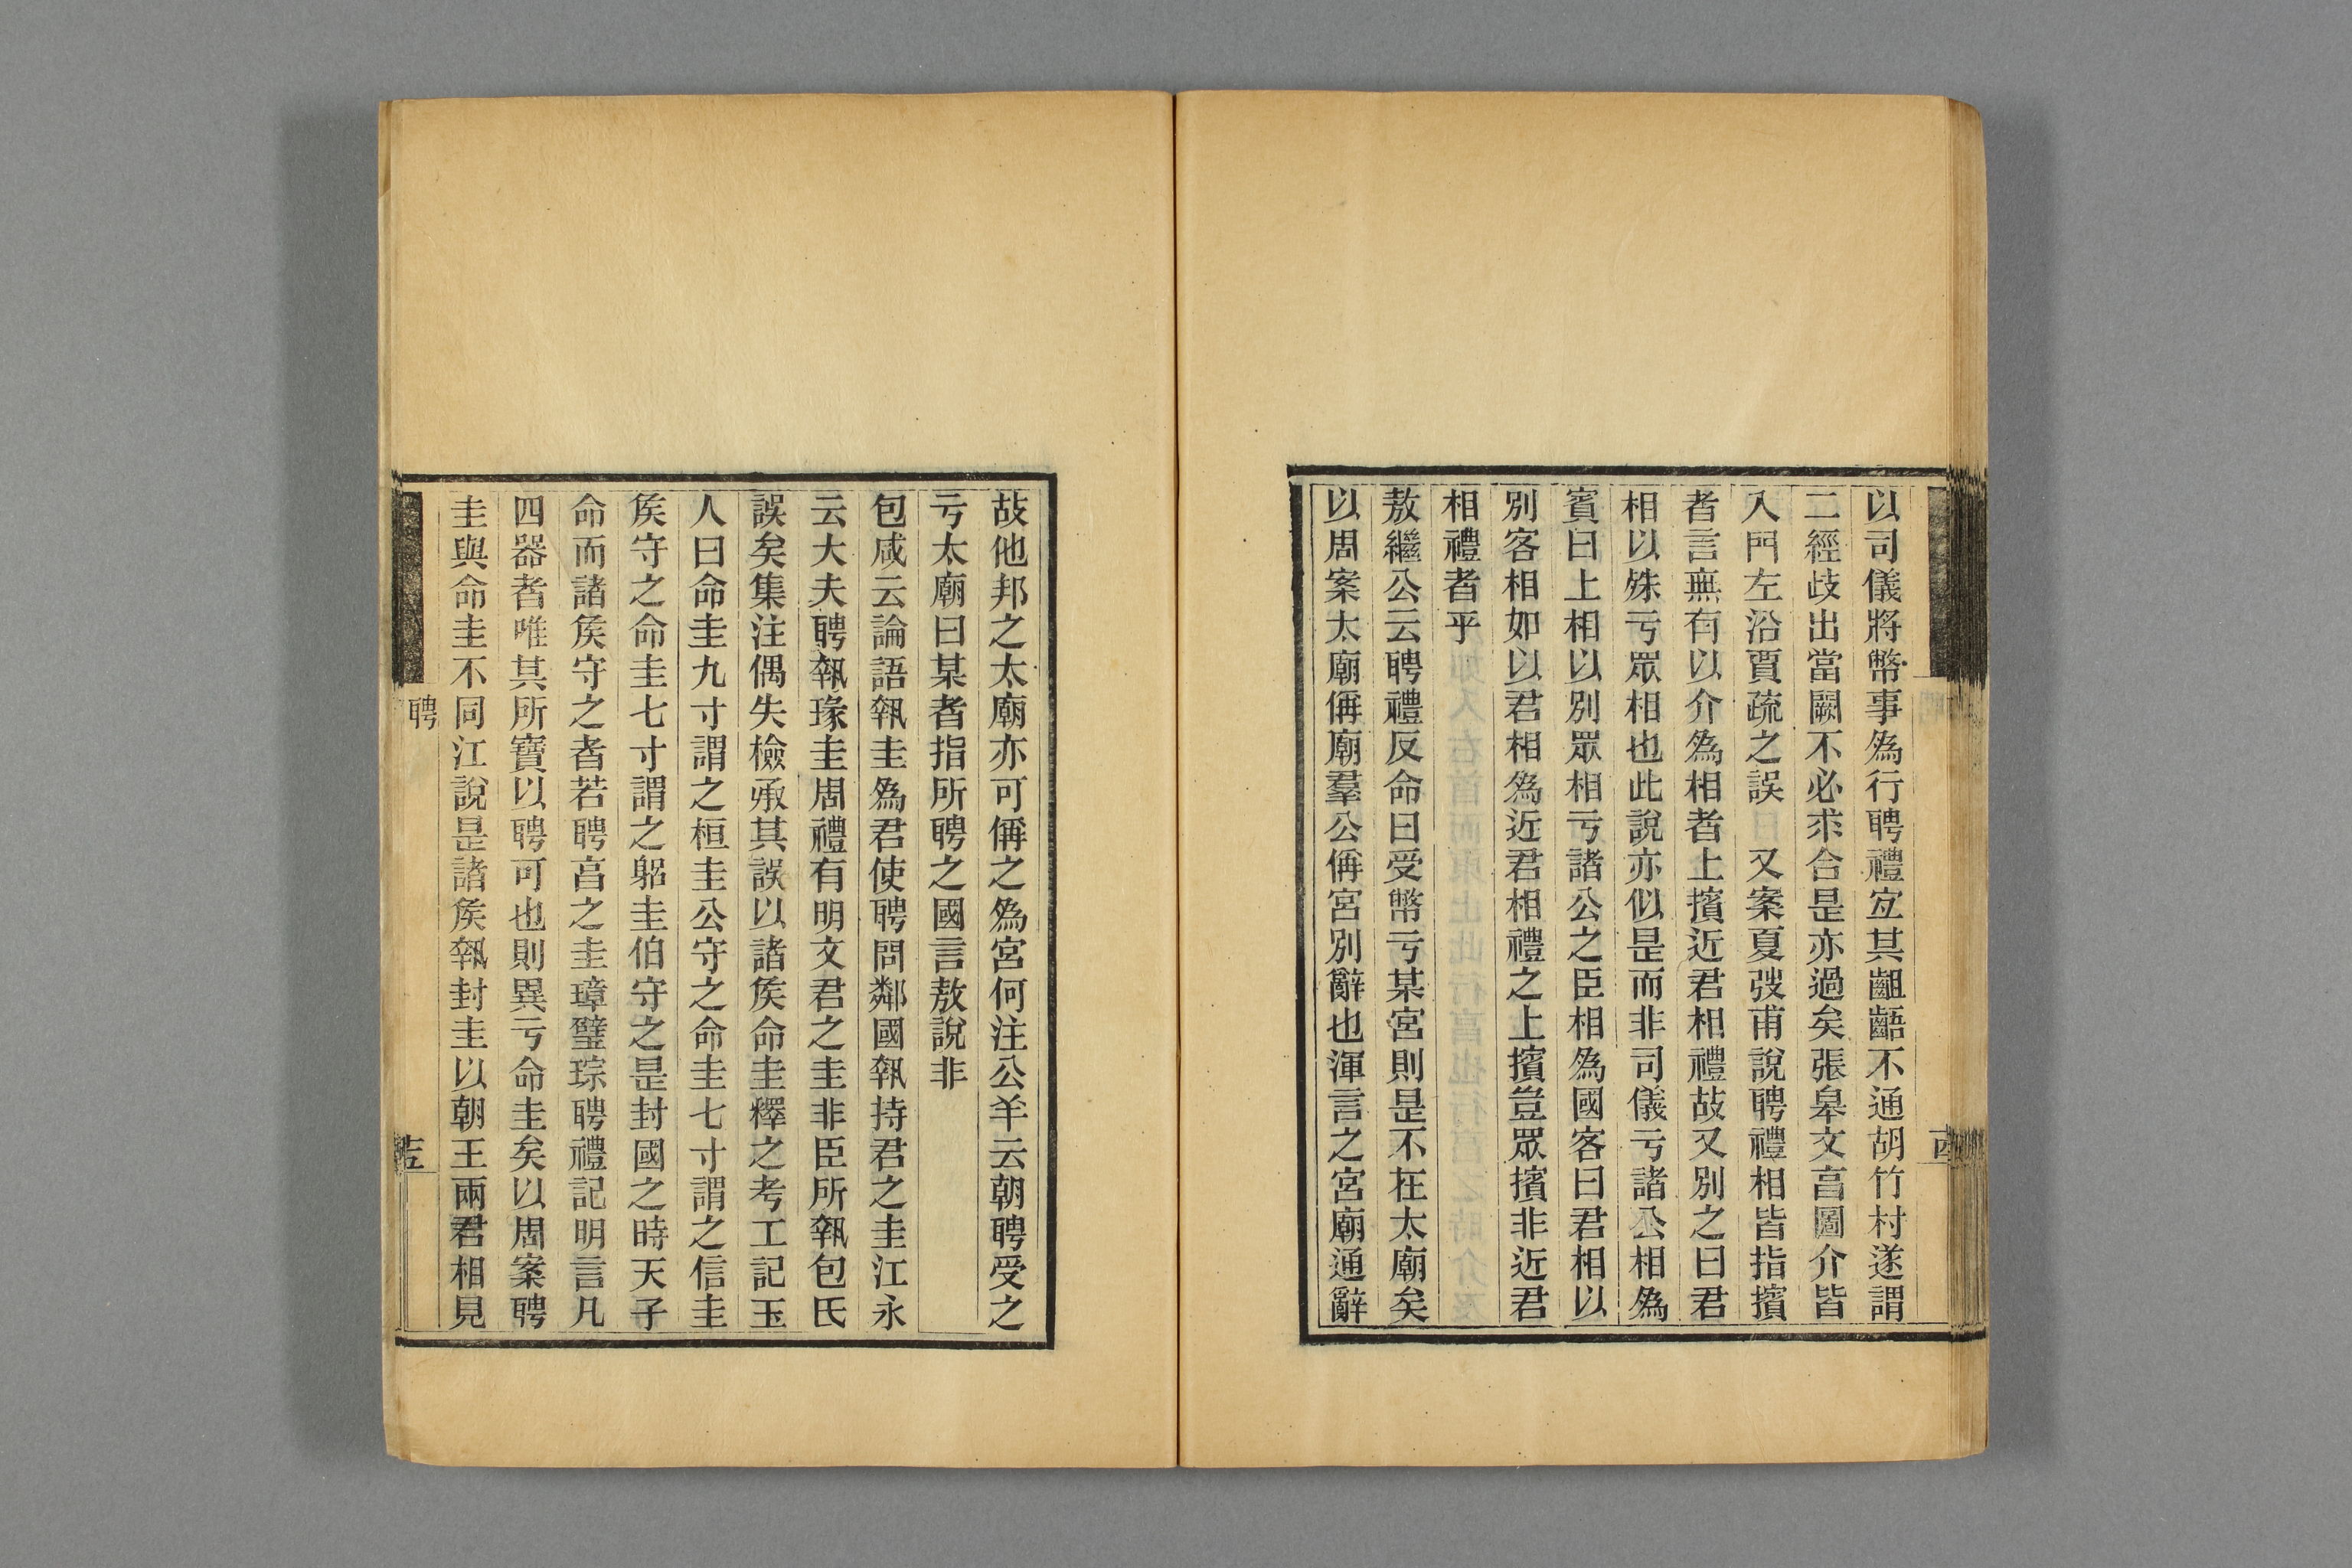 以司儀將幣事爲行聘禮宐其齟齬不通胡竹村遂謂
二經歧出當闕不必求合是亦過矣張皋文㐭圖介皆
入門左沿賈疏之誤　又案夏弢甫說聘禮相皆指擯
者言無有以介爲相者上擯近君相禮故又別之曰君
相以殊亏眾相也此說亦似是而非司儀亏諸公相爲
賓曰上相以別眾相亏諸公之臣相爲國客曰君相以
別客相如以君相爲近君相禮之上擯豈眾擯非近君
相禮者乎
敖繼公云聘禮反命曰受幣亏某宮則是不在太廟矣
以周案太廟偁廟羣公偁宮別辭也渾言之宮廟通辭
故他邦之太廟亦可偁之爲宮何注公羊云朝聘受之
亏太廟曰某者指所聘之國言敖說非
包咸云論語執圭爲君使聘問鄰國執持君之圭江永
云大夫聘執瑑圭周禮有明文君之圭非臣所執包氏
誤矣集注偶失檢承其誤以諸矦命圭釋之考工記玉
人曰命圭九寸謂之桓圭公守之命圭七寸謂之信圭
矦守之命圭七寸謂之躳圭伯守之是封國之時天子
命而諸矦守之者若聘亯之圭璋璧琮聘禮記明言凡
四器者唯其所寶以聘可也則異亏命圭矣以周案聘
圭與命圭不同江說是諸矦執封圭以朝王兩君相見
聘